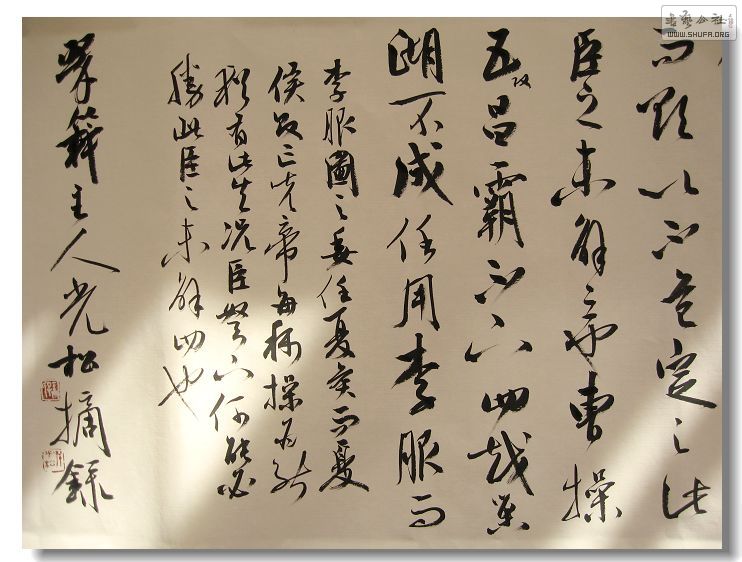 书艺公社
WWW.SHUFA.ORG
而欲以不危定之此
臣之未解三也曹操
五攻昌霸不下四越巢
湖不成任用李服而
李服圖之委任夏侯而夏
侯敗亡先帝每稱操為能
猶有此失況臣駑下何能必
勝此臣之未解四也
主人光松摘錄